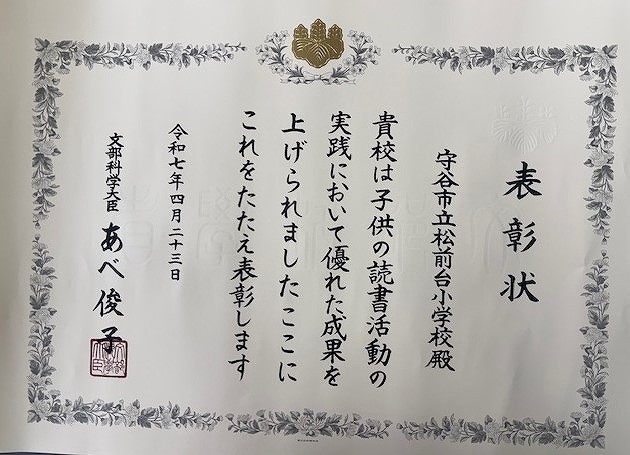 表彰状
守谷市立松前台小学校殿
貴校は子供の読書活動の
実践において優れた成果を
上げられましたここに
これをたたえ表彰します
令和七年四月二十三日
文部科学大臣 あべ俊子